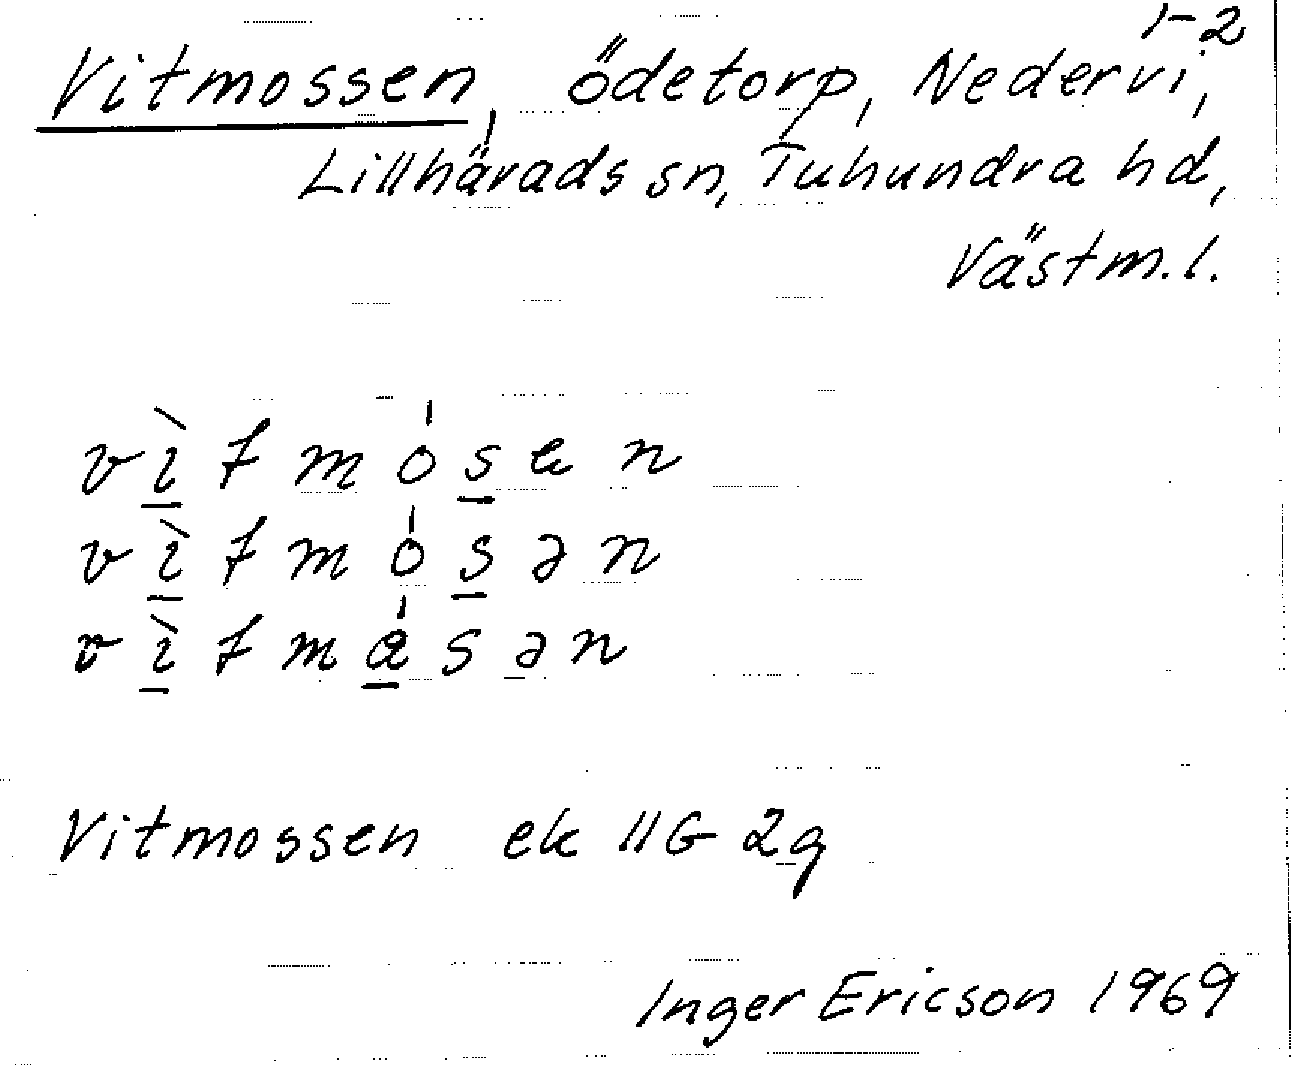 Vitmossen, ödetorp, Nedervi, 1-2
Lillhärads sn, Tuhundra hd,
Västm.l.
vìtmósen
vìtmósən
vìtmåsən
Vitmossen ek 11G 2g
Inger Ericson 1969